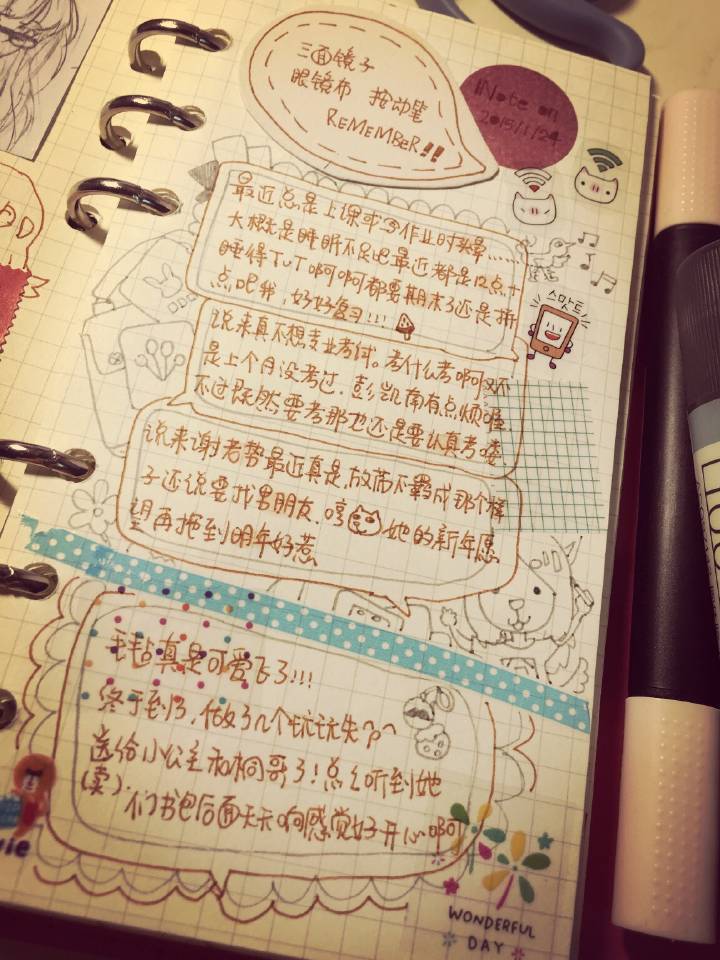 三面镜子
眼镜布 按动笔
REMEMBER!!
Note on
2015/1/24
最近总是上课或写作业时头晕......
大概是睡眠不足吧最近都是12点才
睡得TvT啊啊都要期末了还是拼
点吧我，好好复习!!!
스맛트
说来真不想专业考试。考什么考啊又不
是上个月没考过．彭凯南有点烦喔
不过既然要考那也还是要认真考喽
说来谢老势最近真是放荡不羁成那个样
子还说要找男朋友．哼 她的新年愿
望再拖到明年好惹
毛毡真是可爱飞了!!!
终于到了，做了几个玩玩失^p^
送给小公主和桐哥了！点点听到她
(卖)．
们书包后面天天响感觉好开心啊
vie
WONDERFUL
DAY